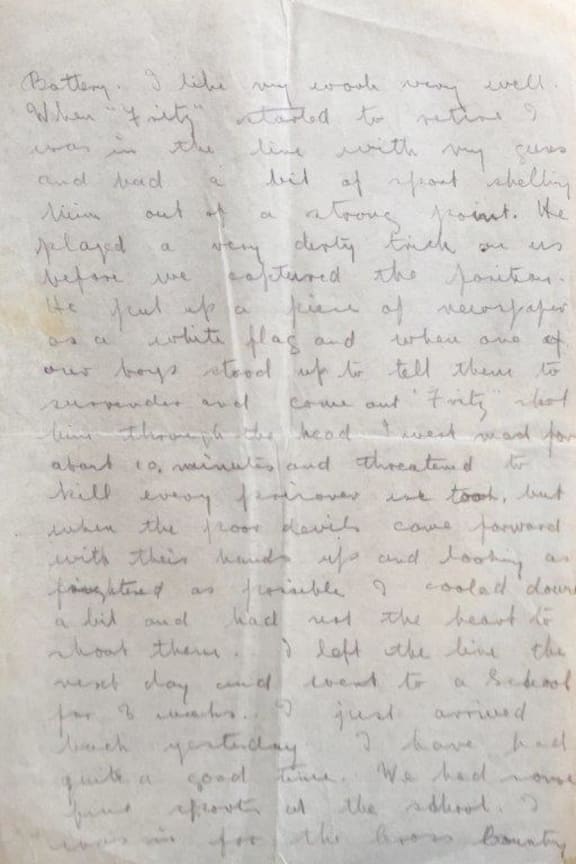 Battery. I like my work very well.
When "Fritz" started to retire I
was in the line with my guns
and had a bit of sport shelling
him out of a strong point. He
played a very dirty trick on us
before we captured the position.
He put up a piece of newspaper
as a white flag and when one of
our boys stood up to tell them to
surrender and come out "Fritz" shot
him through the head I went mad for
about 10, minutes and threatened to
kill every prisoner we took, but
when the poor devils came forward
with their hands up and looking as
frightened as possible I cooled down
a bit and had not the heart to
shoot them. I left the line the
next day and went to a School
for 3 weeks. I just arrived
back yesterday I have had
quite a good time. We had some
fine sports at the school. I
was in for the Cross Country